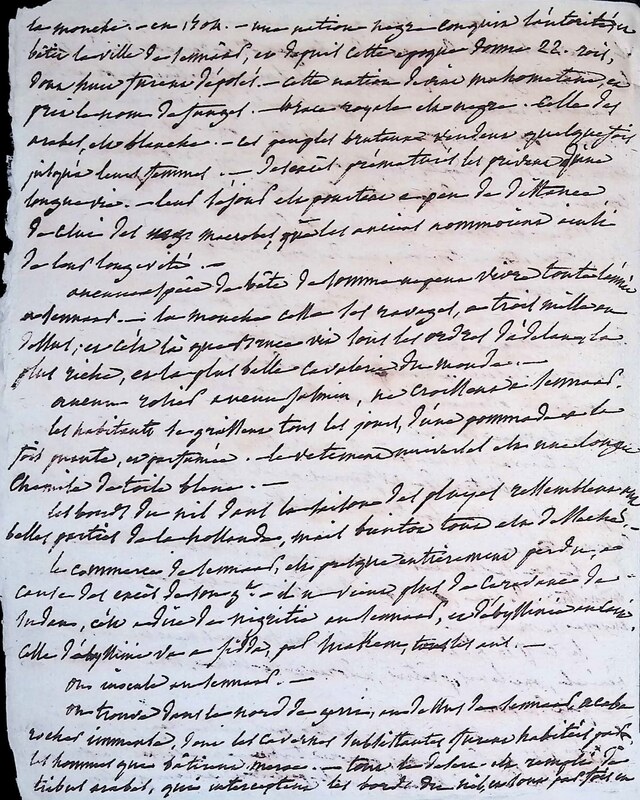 la mouche. — en 1504. — une nation negre conquit l'autorité, et
bâtit la ville de sennaar, et depuis cette epoque donna 22. rois,
dont huit furent déposés. — cette nation devint mahometane, et
prit le nom de funges. — la race royale est negre. celle des
arabes, est blanche. — ces peuples brutaux vendent quelquefois
jusqu'à leurs femmes. — des excès prematurés les privent d'une
longue vie. — leur séjour est pourtant a peu de distance
de celui des macrobes, que les anciens nommoient ainsi
de leur longevité. —
aucune espèce de bête de somme ne peut vivre toute l'année
au sennaar. — la mouche cause ses ravages, a trois mille au
dessus; et c'est là que Bruce vit sous les ordres d'adelan, la
plus riche, et la plus belle cavalerie du monde. —
aucun rosier aucun jasmin, ne croissent a sennaar.
les habitants se graissent tous les jours, d'une pommade a la
fois puante, et parfumée. — le vetement universel est une longue
chemise de toile bleue. —
les bords du nil dans la saison des pluyes ressemblent aux
belles parties de la hollande, mais bientot tout est desseché. —
le commerce de sennaar, est presque entièrement perdu, a
cause des excès du — il ne vient plus de caravane de
sudan, c'est a dire de nigritie au sennaar, et d'abyssinie au caire
celle d'abyssinie va a jidda, par tous les ans. —
on inocule au sennaar. —
on trouve dans le nord de gerri, au dessus de sennaar,
roches immense, dont les cavernes subsistantes furent habitées par
les hommes que bâtirent meroe. — tout le desert est rempli de
tribus arabes, qui interceptent les bords du nil,